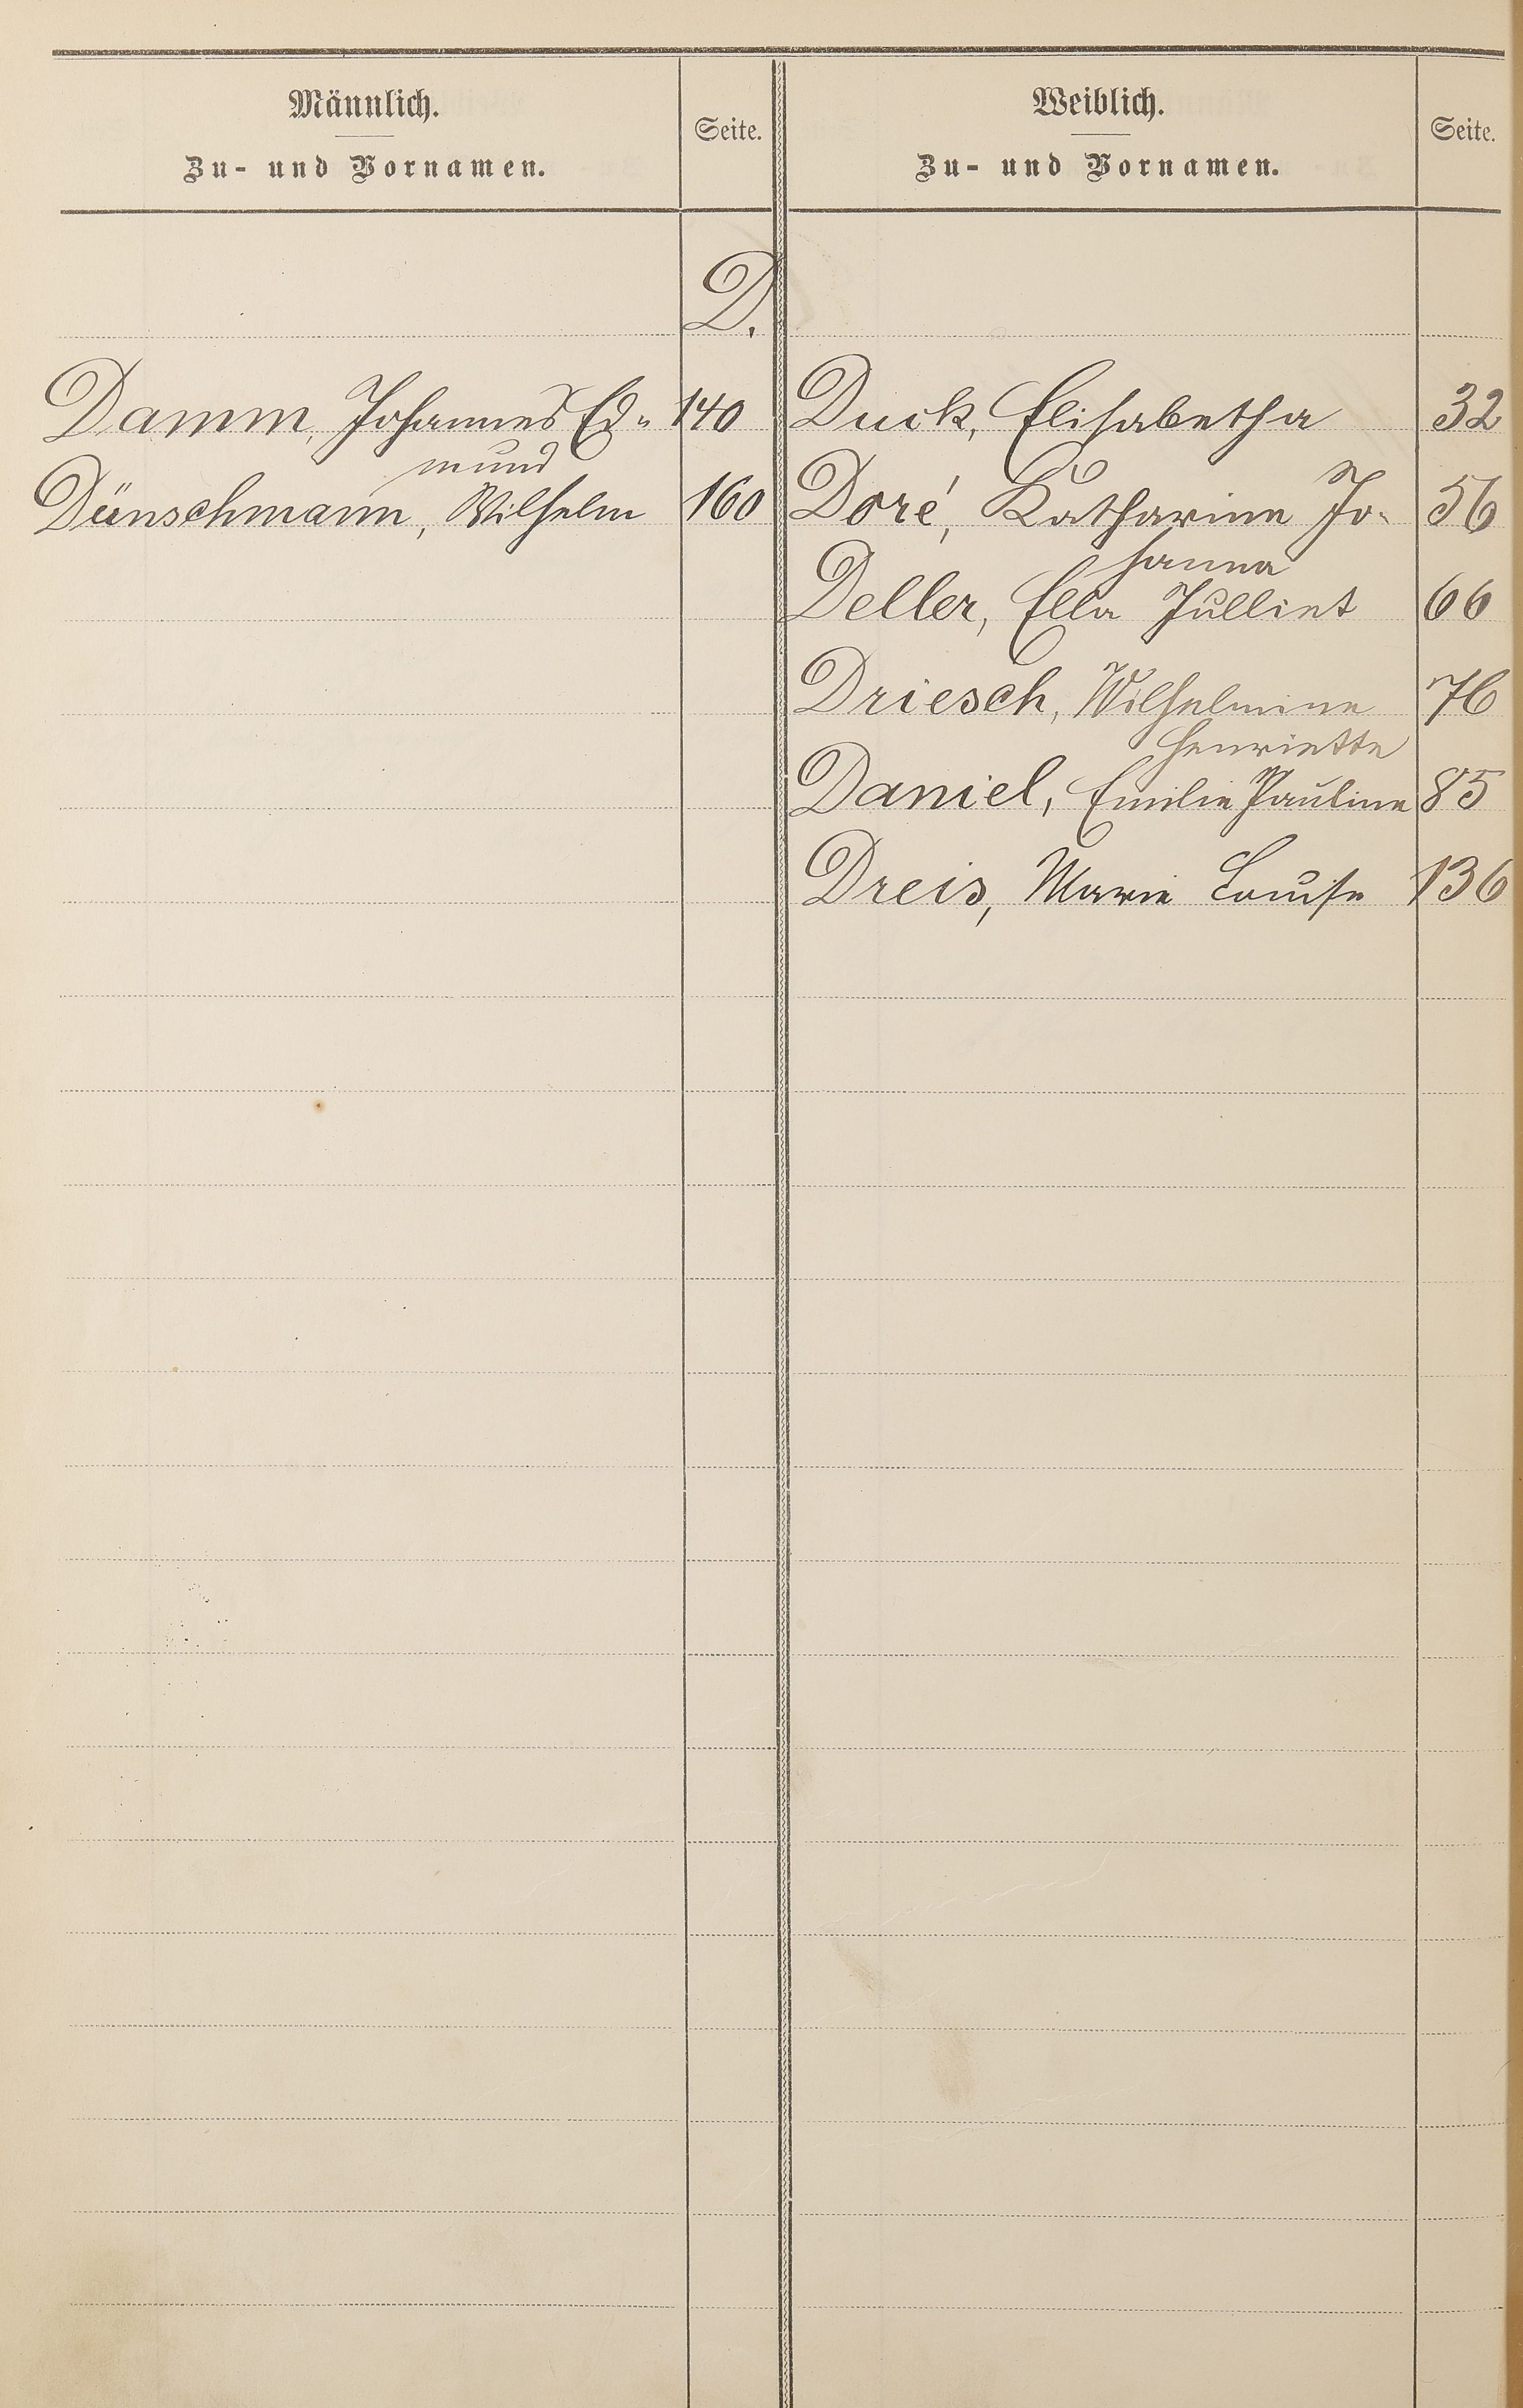 Männlich.
Zu- und Vornamen.
Seite.
Weiblich.
Zu- und Vornamen.
Seite.
D.
Damm, Johannes Ed- 140
mund
Dünschmann, Wilhelm 160
Duck, Elisabetha 32
Doré, Katharine Jo- 56
hanna
Deller, Ella Julliet 66
Driesch, Wilhelmine 76
Henriette
Daniel, Emilie Pauline 85
Dreis, Marie Louise 136